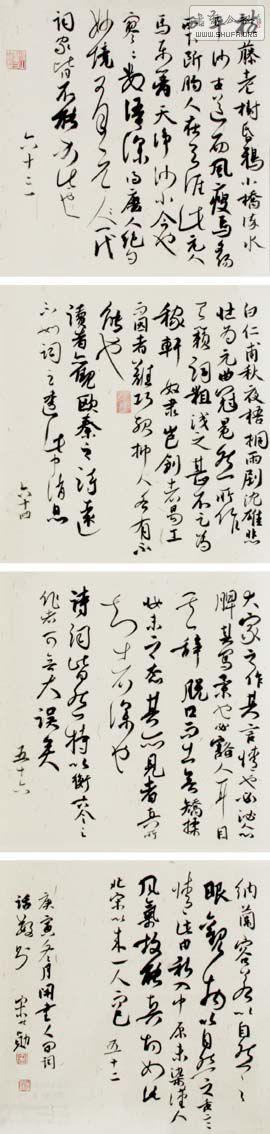 WWW.SHUFA.ORG
枯藤老樹昏鴉小橋流水
平沙古道西風瘦馬夕陽
西下斷腸人在天涯此元人
馬東籬天淨沙小令也
寥寥數語深得唐人絕句
妙境有元人一代
詞家皆不能办此也
六十三
白仁甫秋夜梧桐雨劇沈雄悲
壯為元曲冠冕然所作
天籟詞粗淺之甚不足為
稼軒奴隸豈創者易工
而因者難巧歟抑人各有不
能也
讀者觀歐秦之詩遠
不如詞足透此中消息
六十四
大家之作其言情也必沁人
脾其寫景也必豁人耳目
其辭脫口而出無矯揉
妝束之態其所見者真所
知者深也
詩詞皆然持以衡古今之
作者可無大誤矣
五十六
納蘭容若以自然之
眼觀物以自然之舌言
情此由初入中原未染漢人
風氣故能真切如此
北宋以來一人而已
五十二
庚寅冬月閑書人間詞
話數則